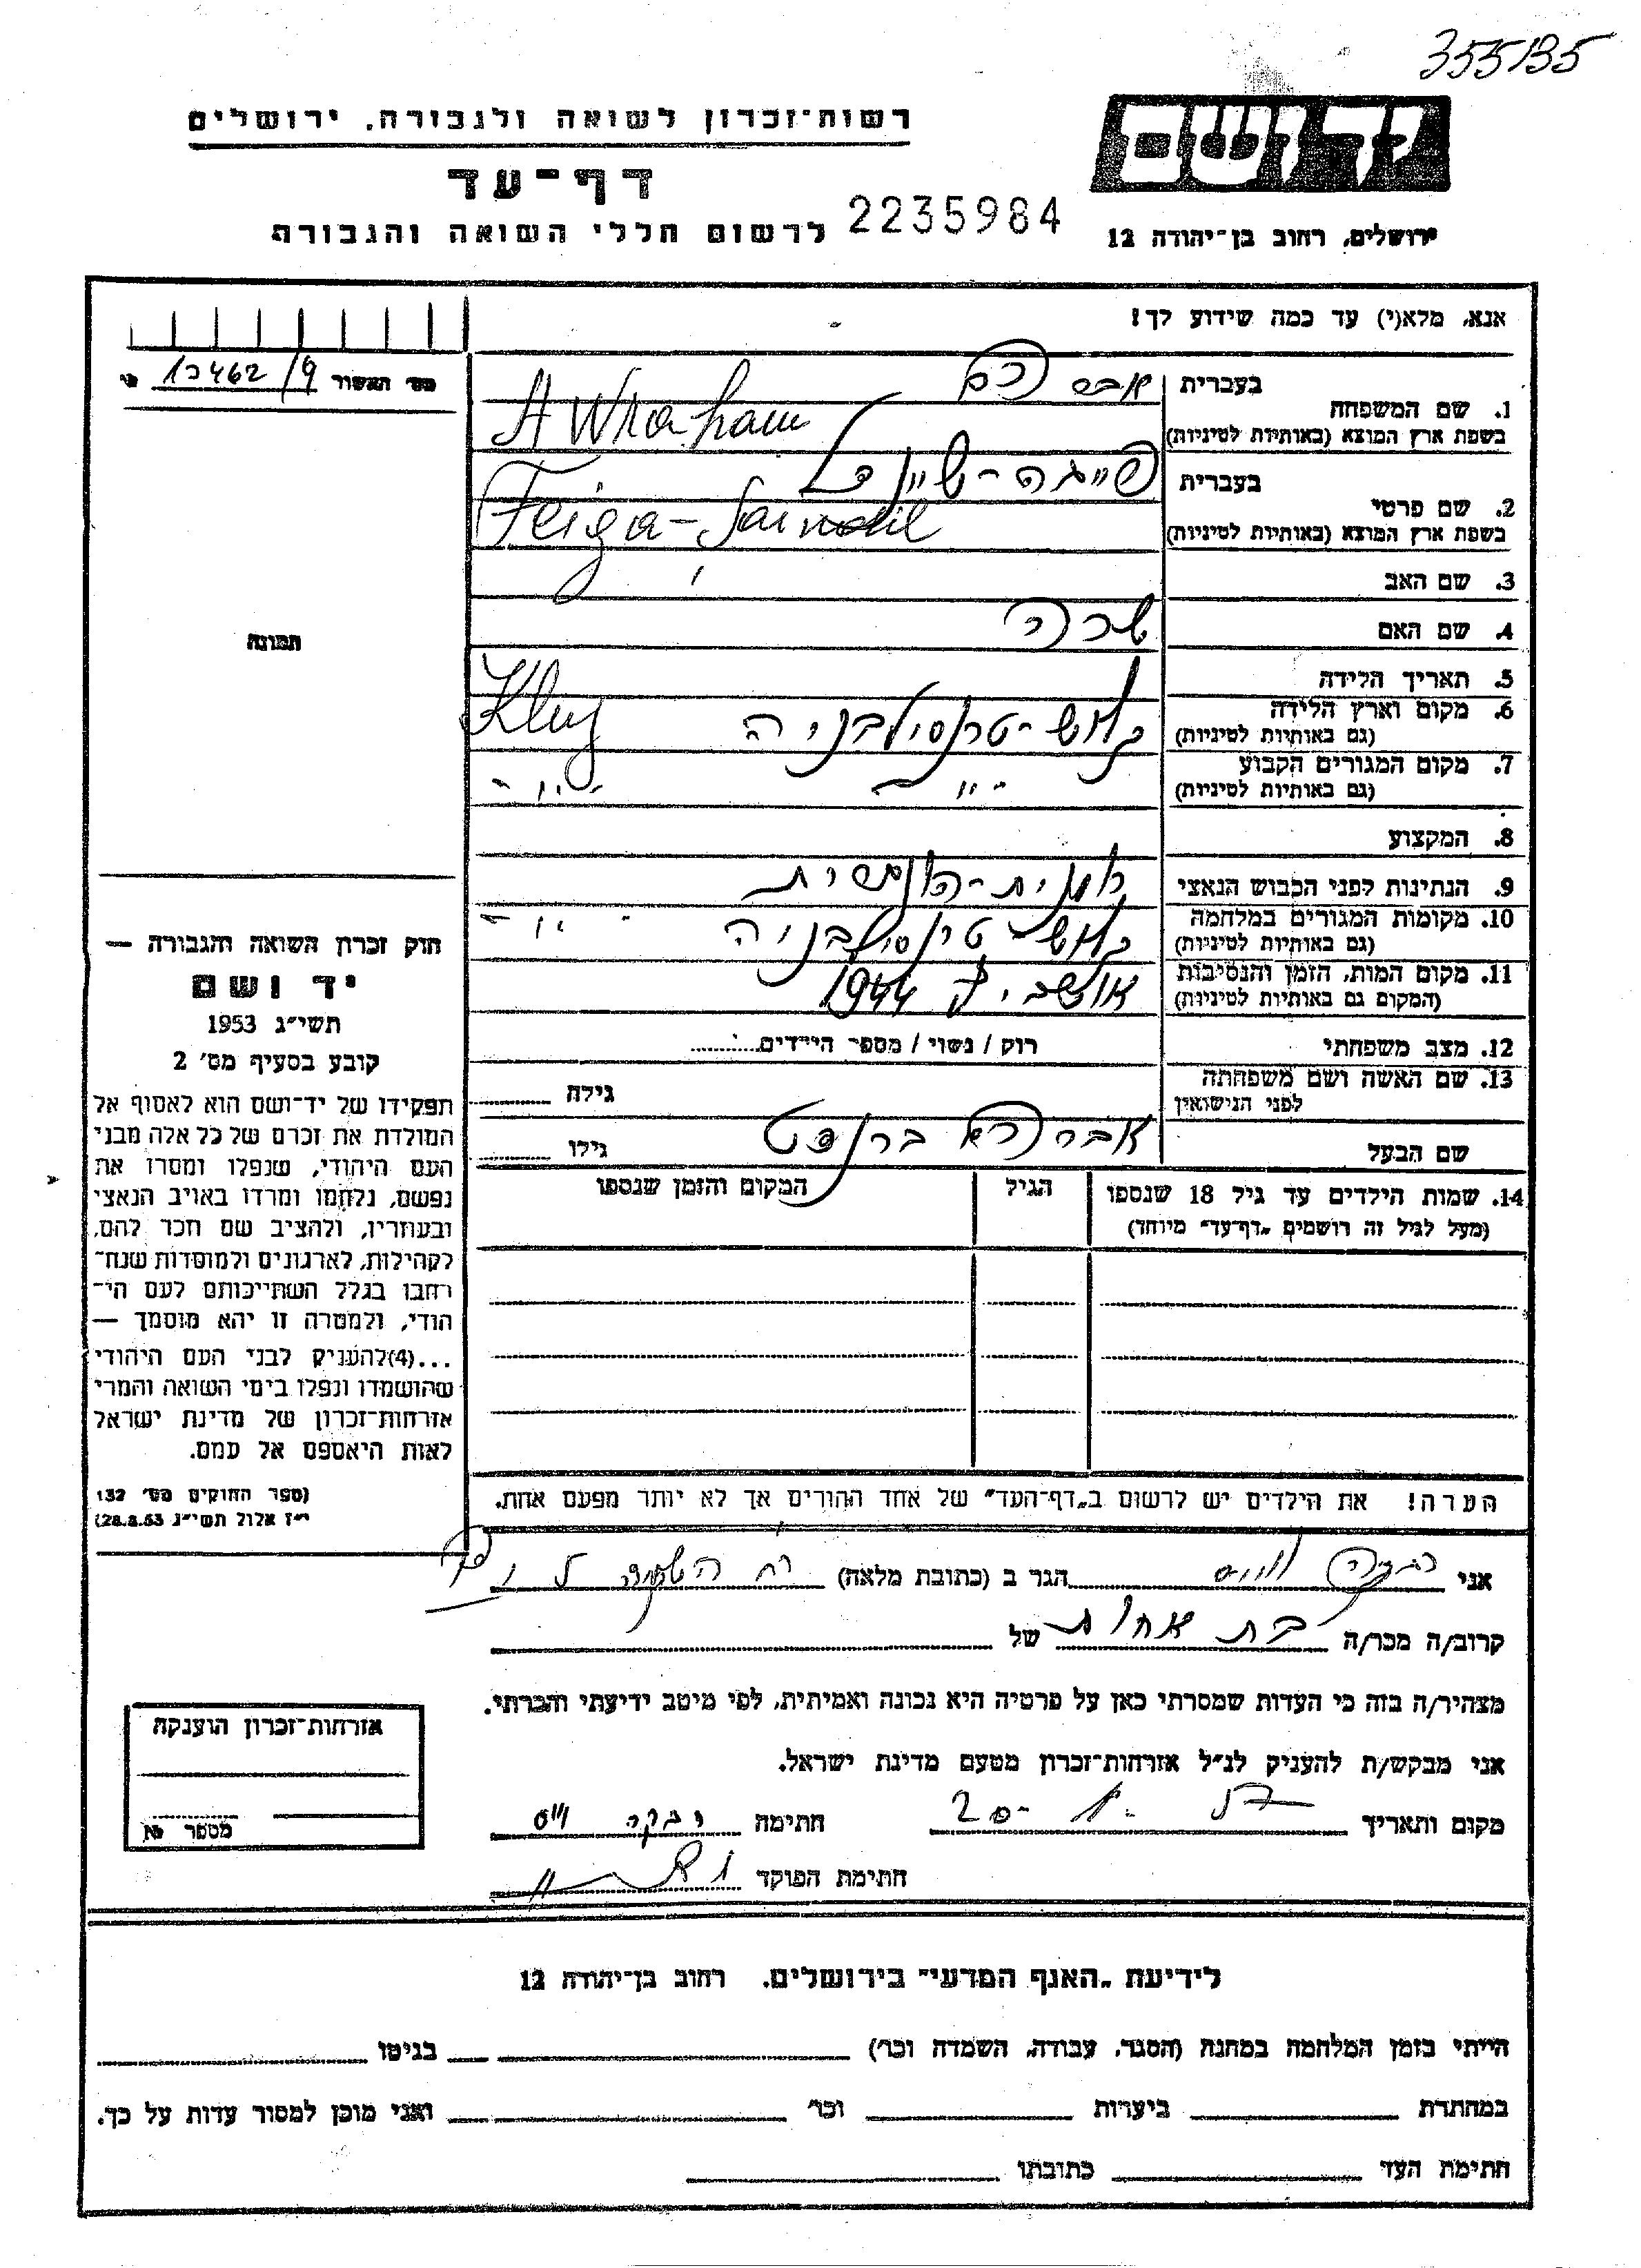 355135
יד ושם
רשות־זכרון לשואה ולגבורה, ירושלים
דף־עד
לרשום חללי השואה והגבורה
2235984
ירושלים, רחוב בן־יהודה 12
אנא, מלא(י) עד כמה שידוע לך!
מס׳ האשור 13462/9
תמונה
1. שם המשפחה
בעברית אברהם
בשפת ארץ המוצא (באותיות לטיניות) Awraham
2. שם פרטי
בעברית פייגה-שיינדל
בשפת ארץ המוצא (באותיות לטיניות) Feiga-Saindil
3. שם האב
4. שם האם שרה
5. תאריך הלידה
6. מקום וארץ הלידה
(גם באותיות לטיניות) קלוש-טרנסילבניה Kluj
7. מקום המגורים הקבוע
(גם באותיות לטיניות) -"- -"-
8. המקצוע
9. הנתינות לפני הכבוש הנאצי
10. מקומות המגורים במלחמה
(גם באותיות לטיניות) קלוש-טרנסילבניה -"-
11. מקום המות, הזמן והנסיבות
(המקום גם באותיות לטיניות) אושביץ 1944
12. מצב משפחתי רוק / נשוי / מספר הילדים
13. שם האשה ושם משפחתה
לפני הנישואין גילה
שם הבעל אברהם גילו
14. שמות הילדים עד גיל 18 שנספו
(מעל לגיל זה רושמים „דף־עד״ מיוחד)
הגיל
המקום והזמן שנספו
הערה! את הילדים יש לרשום ב„דף־העד״ של אחד ההורים אך לא יותר מפעם אחת.
חוק זכרון השואה והגבורה —
יד ושם
תשי״ג 1953
קובע בסעיף מס׳ 2
תפקידו של יד־ושם הוא לאסוף אל
המולדת את זכרם של כל אלה מבני
העם היהודי, שנפלו ומסרו את
נפשם, נלחמו ומרדו באויב הנאצי
ובעוזריו, ולהציב שם וזכר להם,
לקהילות, לארגונים ולמוסדות שנח־
רבו בגלל השתייכותם לעם הי־
הודי, ולמטרה זו יהא מוסמך —
...(4)להעניק לבני העם היהודי
שהושמדו ונפלו בימי השואה והמרי
אזרחות־זכרון של מדינת ישראל
לאות היאספם אל עמם.
(ספר החוקים מס׳ 132
י״ז אלול תשי״ג 28.8.53)
אני רבקה ווייס הגר ב (כתובת מלאה)
קרוב/ה מכר/ה בת אחות של
מצהיר/ה בזה כי העדות שמסרתי כאן על פרטיה היא נכונה ואמיתית, לפי מיטב ידיעתי והכרתי.
אני מבקש/ת להעניק לנ״ל אזרחות־זכרון מטעם מדינת ישראל.
מקום ותאריך חתימה רבקה וייס
חתימת הפוקד
אזרחות־זכרון הוענקה
מספר
לידיעת „האגף המדעי״ בירושלים, רחוב בן־יהודה 12
הייתי בזמן המלחמה במחנה (הסגר, עבודה, השמדה וכר׳) בגיטו
במחתרת ביערות וכר׳ ואני מוכן למסור עדות על כך.
חתימת העד כתובתו